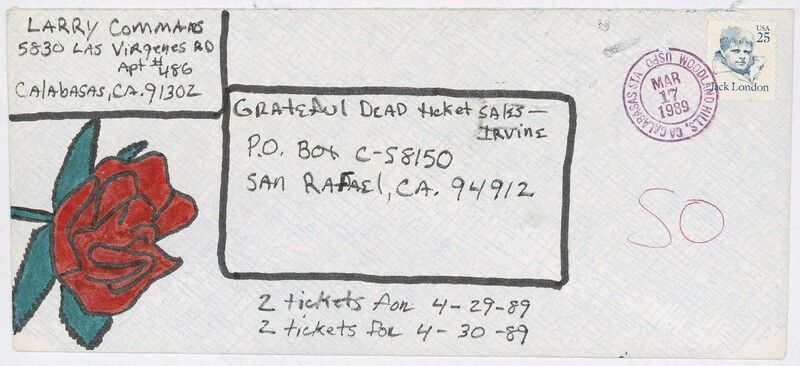 LARRY Commans
5830 LAS VIRGENES RD
Apt # 486
CALABASAS, CA. 91302
GRATEFUL DEAD ticket SALES —
IRVINE
P.O. Box C-58150
SAN RAFAEL, CA. 94912
2 tickets for 4-29-89
2 tickets for 4-30-89
CALABASAS STA USPO WOODLAND HILLS, CA
MAR
17
1989
USA
25
Jack London
SO